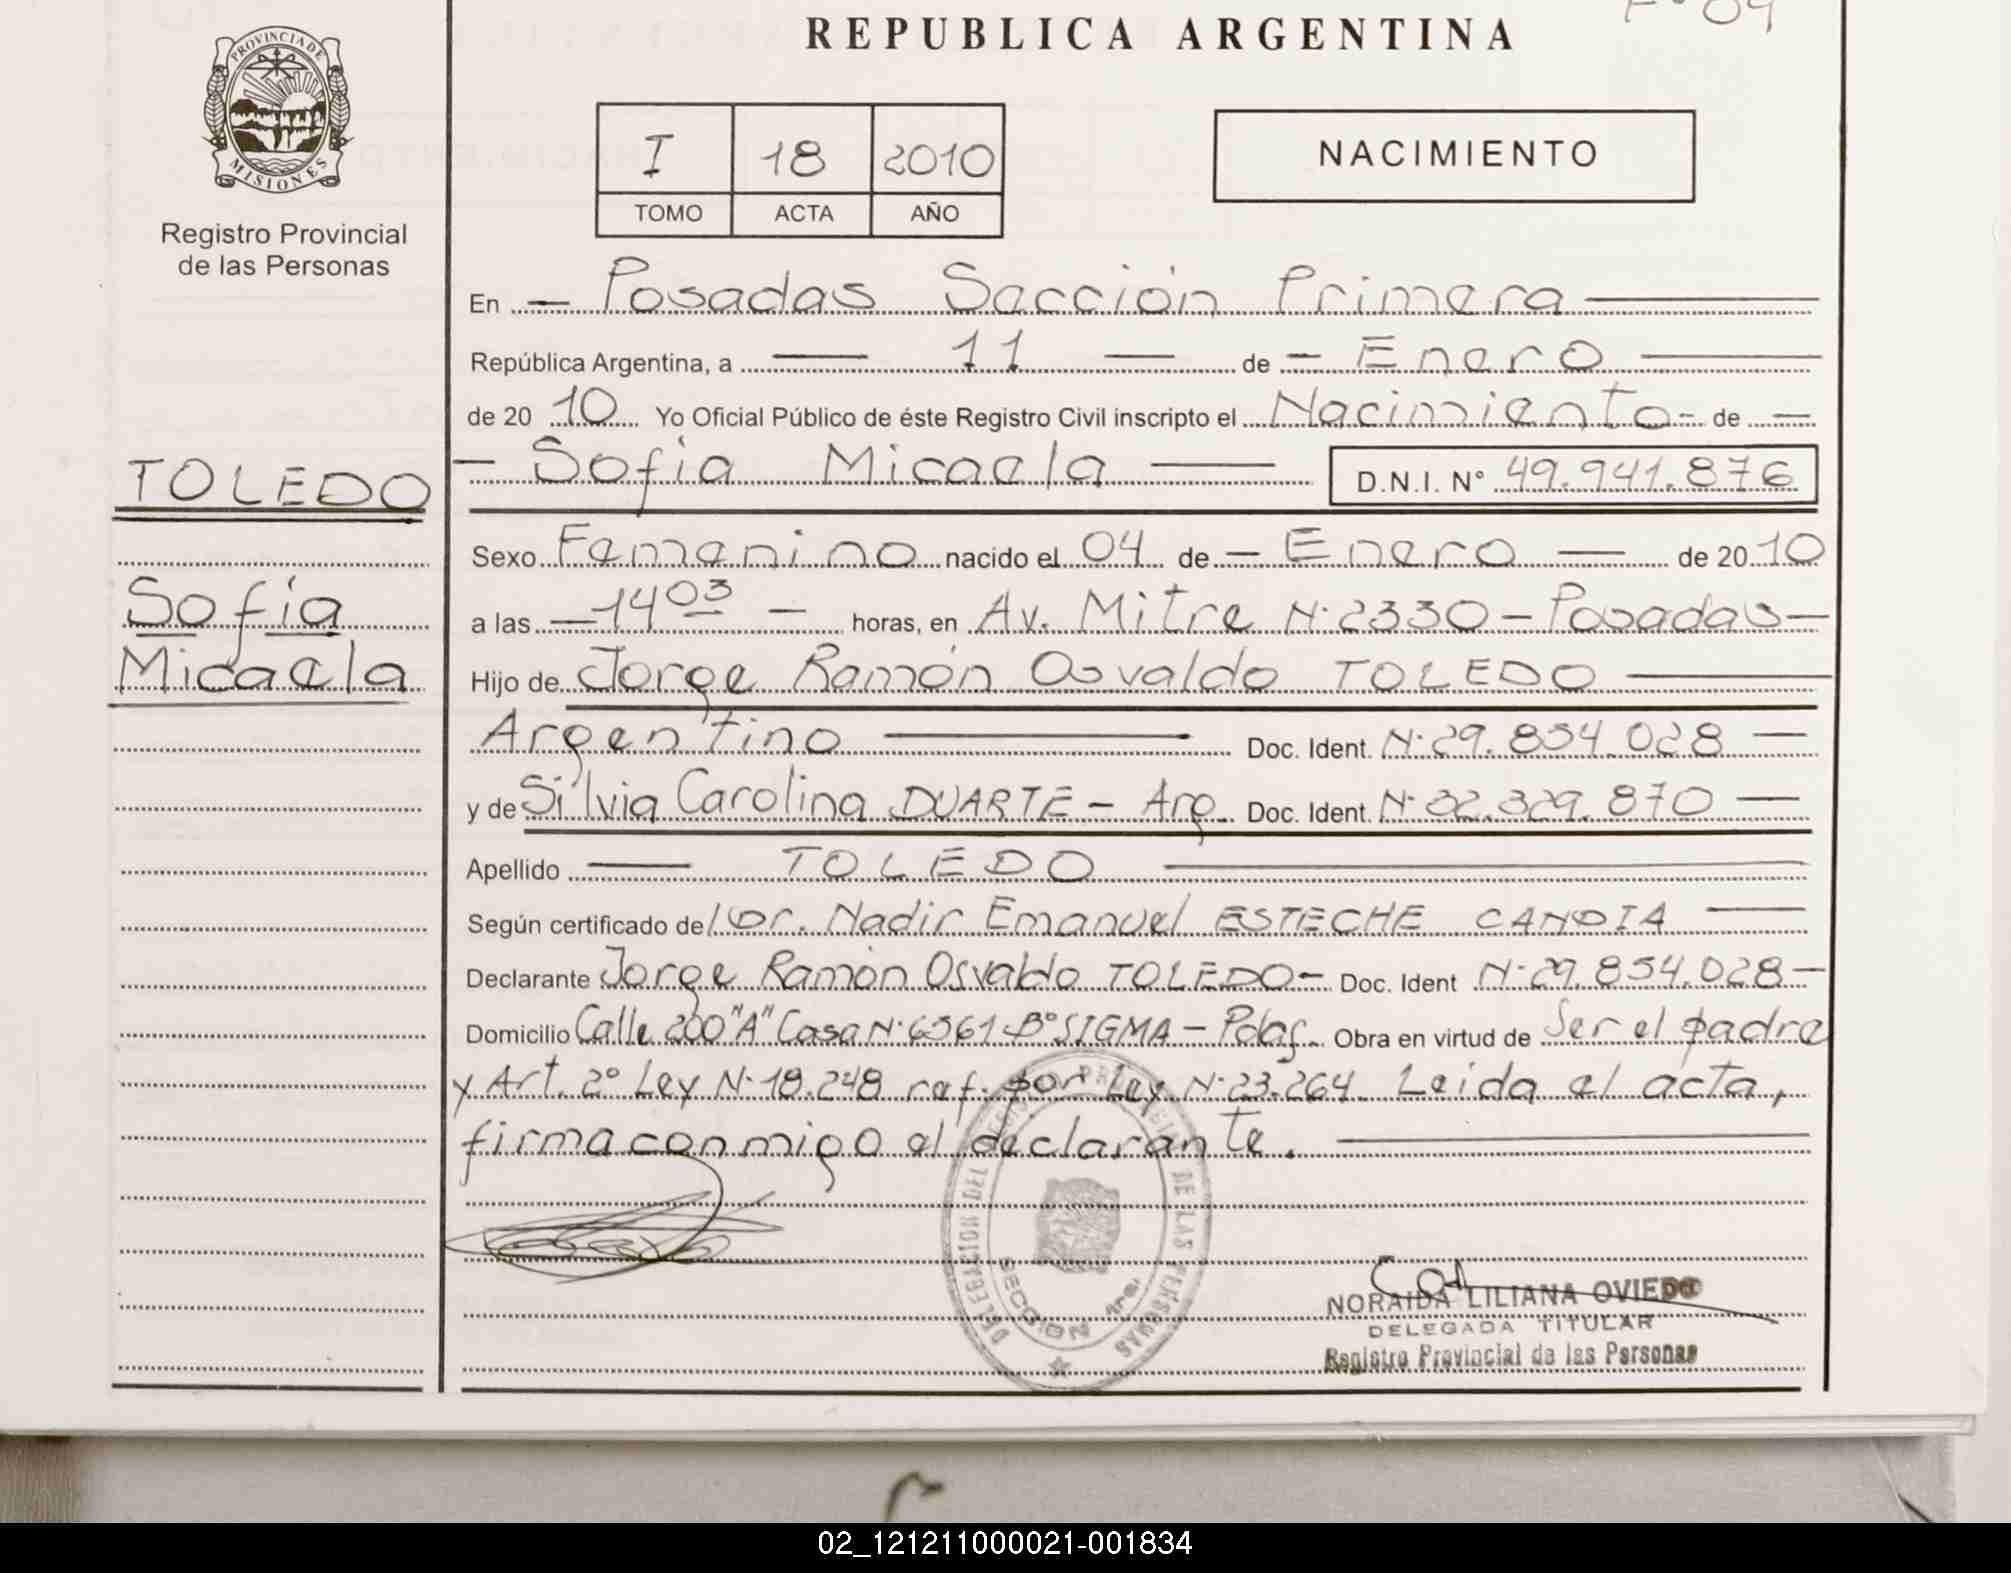 REPUBLICA ARGENTINA
Fº 09
PROVINCIA DE
MISIONES
Registro Provincial
de las Personas
I 18 2010
TOMO ACTA AÑO
NACIMIENTO
En Posadas Sección Primera
República Argentina, a 11 de Enero
de 20 10 Yo Oficial Público de éste Registro Civil inscripto el Nacimiento de
Sofía Micaela D.N.I. Nº 49.941.876
TOLEDO
Sofía
Micaela
Sexo Femenino nacido el 04 de Enero de 20 10
a las 14 03 horas, en Av. Mitre Nº 2330 - Posadas
Hijo de Jorge Ramón Osvaldo TOLEDO
Argentino Doc. Ident. Nº 29.834.028
y de Silvia Carolina DUARTE - Arg. Doc. Ident. Nº 32.329.870
Apellido TOLEDO
Según certificado de/l Dr. Nadir Emanuel ESTECHE CANDIA
Declarante Jorge Ramón Osvaldo TOLEDO - Doc. Ident Nº 29.834.028
Domicilio Calle 200 "A" Casa Nº 6361 Bº SIGMA - Pdas. Obra en virtud de Ser el padre
y Art. 2º Ley Nº 18.248 ref. por Ley Nº 23.264. Leida el acta,
firma conmigo el declarante.
DELEGACION DEL REGISTRO PROVINCIAL DE LAS PERSONAS
SECCION 1ra.
NORAIDA LILIANA OVIEDO
DELEGADA TITULAR
Registro Provincial de las Personas
02_121211000021-001834